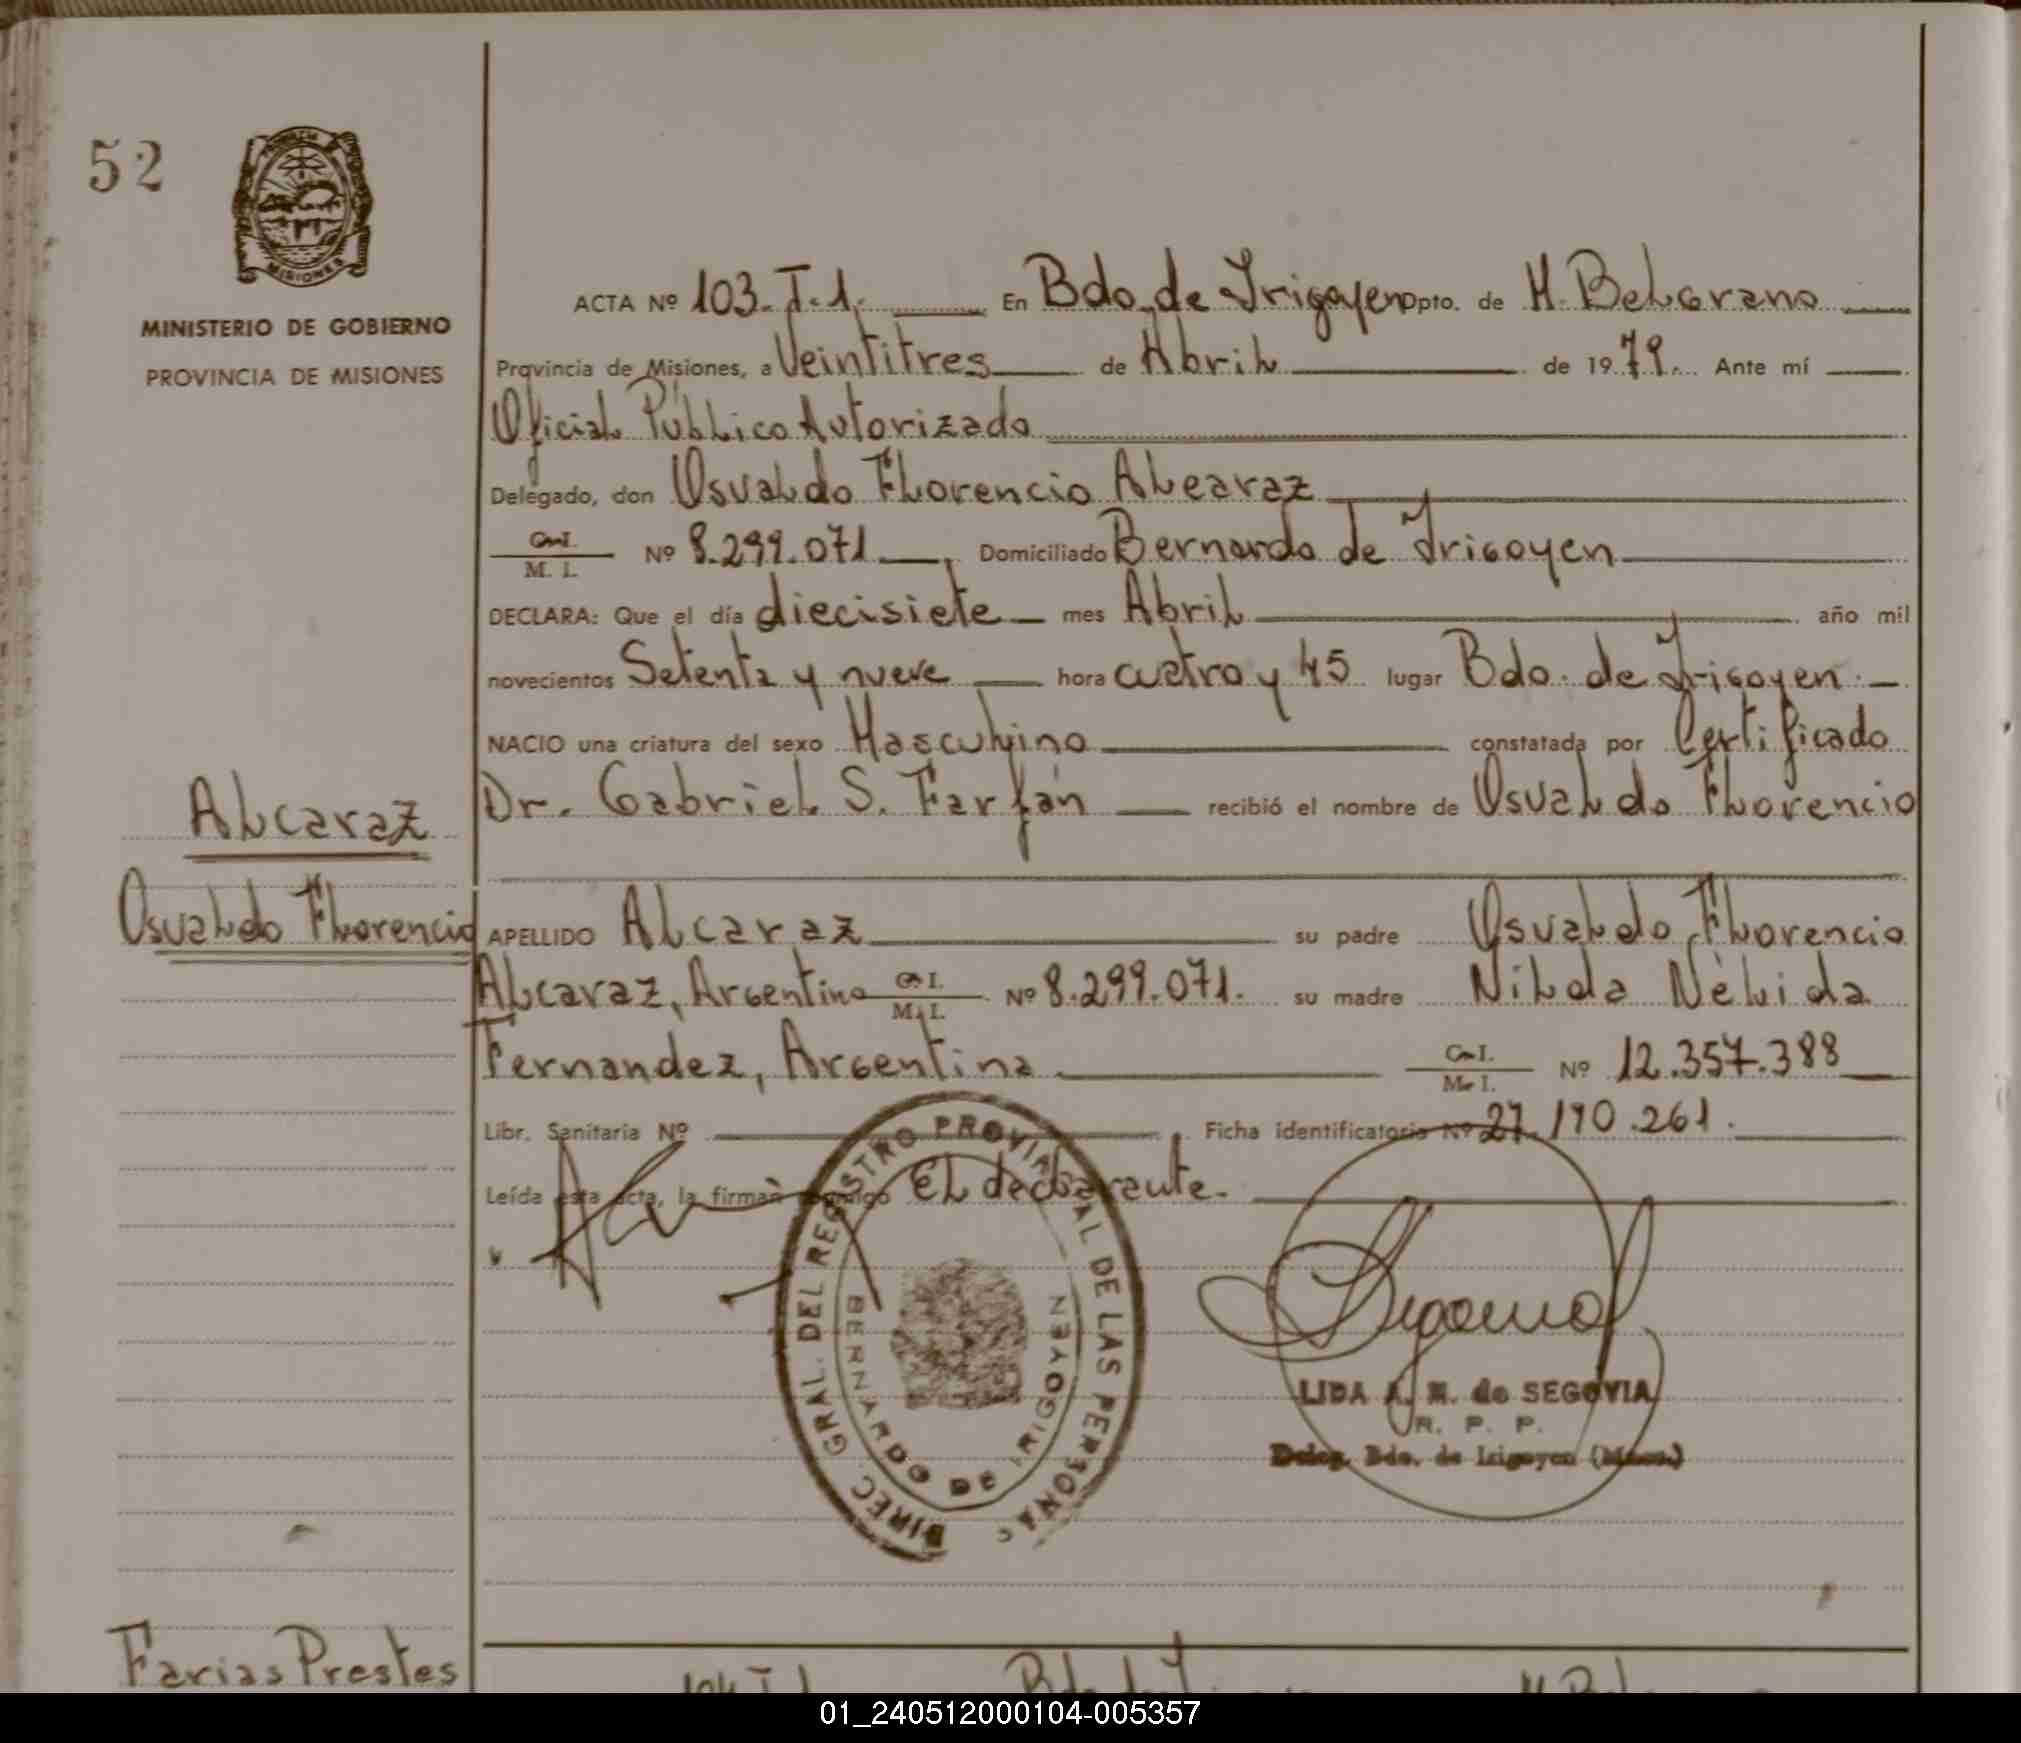 52
MISIONES
MINISTERIO DE GOBIERNO
PROVINCIA DE MISIONES
ACTA Nº 103. T. 1. En Bdo. de Irigoyen Dpto. de M. Belgrano
Provincia de Misiones, a Veintitres de Abril de 1979. Ante mí
Oficial Público Autorizado
Delegado, don Osvaldo Florencio Alcaraz
C. I. M. I. Nº 8.299.071, Domiciliado Bernardo de Irigoyen
DECLARA: Que el día diecisiete mes Abril año mil
novecientos Setenta y nueve hora cuatro y 45 lugar Bdo. de Irigoyen.
NACIO una criatura del sexo Masculino constatada por Certificado
Dr. Gabriel S. Farfán recibió el nombre de Osvaldo Florencio
Alcaraz
Osvaldo Florencio
APELLIDO Alcaraz su padre Osvaldo Florencio
Alcaraz, Argentino C. I. M. I. Nº 8.299.071. su madre Nilda Nélida
Fernandez, Argentina C. I. M. I. Nº 12.357.388
Libr. Sanitaria Nº Ficha identificatoria Nº 27.170.261.
Leída esta acta, la firman conmigo El declarante.
DIREC GRAL. DEL REGISTRO PROVINCIAL DE LAS PERSONAS
BERNARDO DE IRIGOYEN
LIDA A. M. de SEGOVIA
R. P. P.
Deleg. Bdo. de Irigoyen (Mnes.)
Farias Prestes
01_240512000104-005357